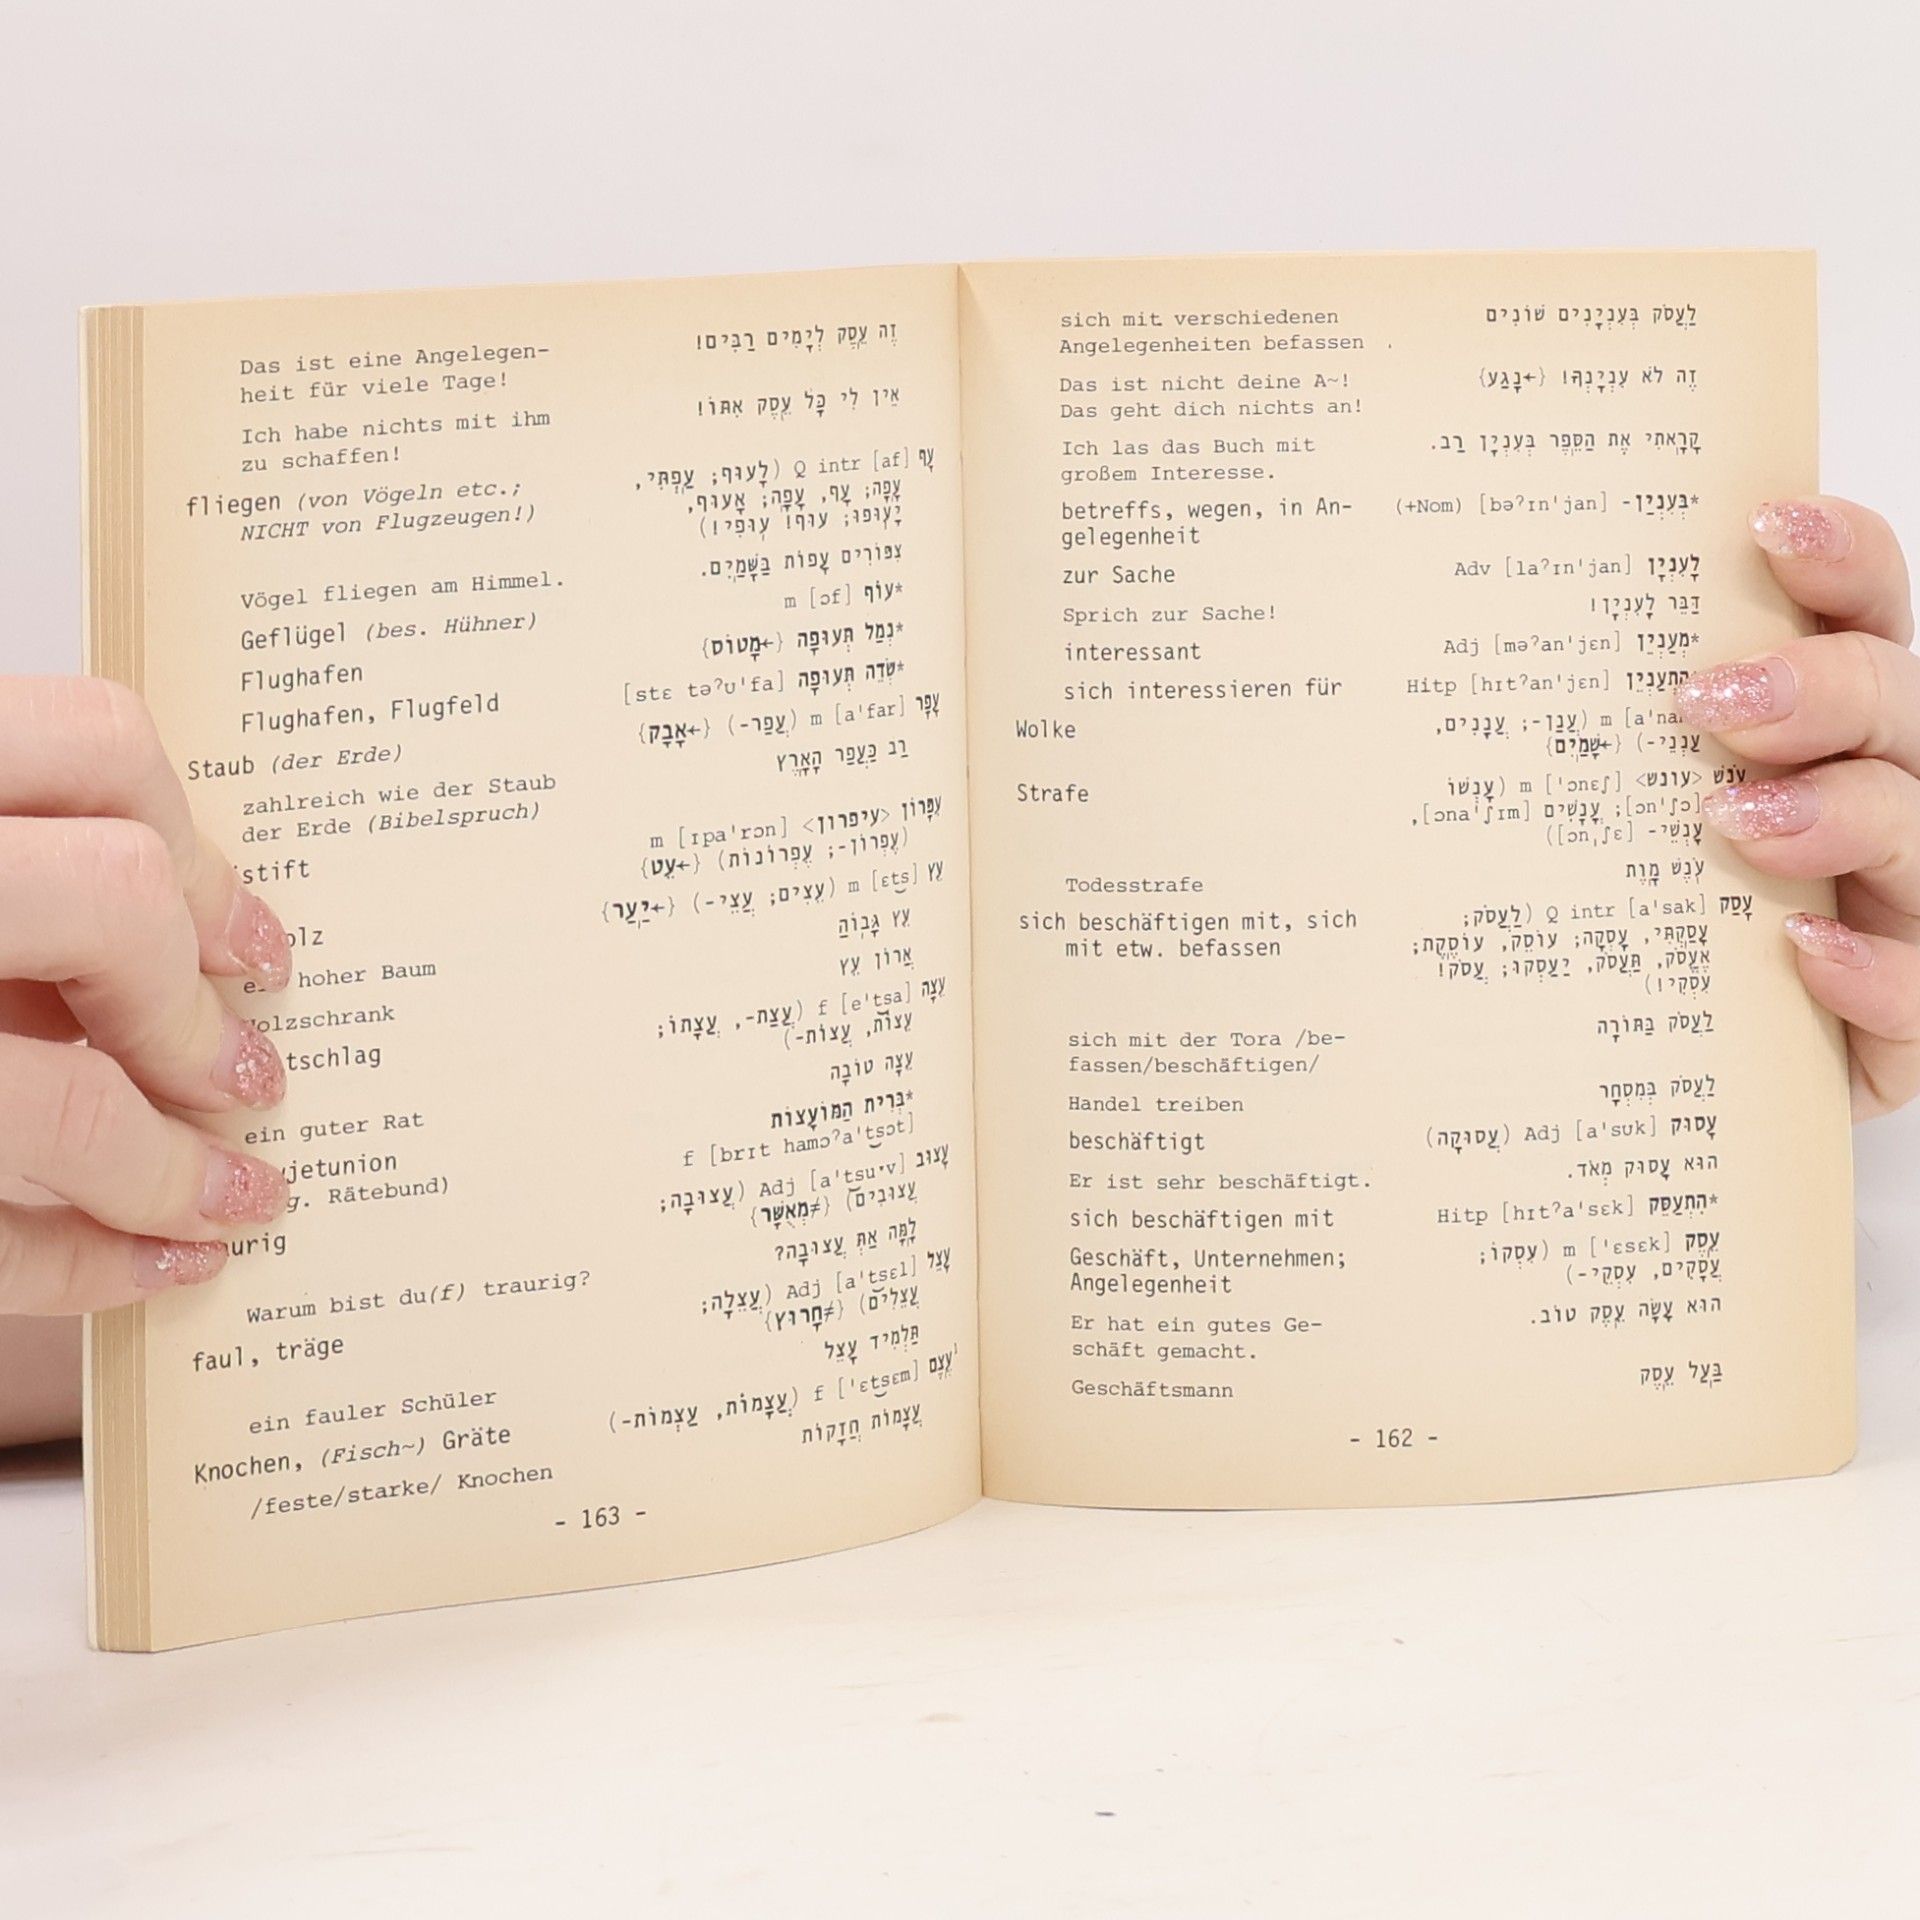 sich mit verschiedenen לַעֲסֹק בְּעִנְיָנִים שׁוֹנִים
Angelegenheiten befassen
Das ist nicht deine A~! זֶה לֹא עִנְיָנְךָ! {←נָגַע}
Das geht dich nichts an!
Ich las das Buch mit קָרָאתִי אֶת הַסֵּפֶר בְּעִנְיָן רַב.
großem Interesse.
betreffs, wegen, in An- *בְּעִנְיַן- [bəˀɪn'jan] (+Nom)
gelegenheit
zur Sache לָעִנְיָן [laˀɪn'jan] Adv
Sprich zur Sache! דַּבֵּר לָעִנְיָן!
interessant *מְעַנְיֵן [məˀan'jɛn] Adj
sich interessieren für [hɪtˀan'jɛn] Hitp
Wolke m (עֲנַן-; עֲנָנִים,
עַנְנֵי-) {←שָׁמַיִם}
Strafe עֹנֶשׁ <עונש> ['ɔnɛʃ] m (עָנְשׁוֹ
[ɔn'ʃɔ]; עֳנָשִׁים [ɔna'ʃɪm],
עָנְשֵׁי- [ɔn,ʃɛ])
Todesstrafe עֹנֶשׁ מָוֶת
sich beschäftigen mit, sich עָסַק [a'sak] Q intr (לַעֲסֹק;
mit etw. befassen עָסַקְתִּי, עָסְקָה; עוֹסֵק, עוֹסֶקֶת;
אֶעֱסֹק, תַּעֲסֹק, יַעַסְקוּ; עֲסֹק!
עִסְקִי!)
sich mit der Tora /be- לַעֲסֹק בַּתּוֹרָה
fassen/beschäftigen/
Handel treiben לַעֲסֹק בְּמִסְחָר
beschäftigt עָסוּק [a'sʊk] Adj (עֲסוּקָה)
Er ist sehr beschäftigt. הוּא עָסוּק מְאֹד.
sich beschäftigen mit *הִתְעַסֵּק [hɪtˀa'sɛk] Hitp
Geschäft, Unternehmen; עֵסֶק ['ɛsɛk] m (עִסְקוֹ;
Angelegenheit עֲסָקִים, עִסְקֵי-)
Er hat ein gutes Ge- הוּא עָשָׂה עֵסֶק טוֹב.
schäft gemacht.
Geschäftsmann בַּעַל עֵסֶק
- 162 -
Das ist eine Angelegen- זֶה עֵסֶק לְיָמִים רַבִּים!
heit für viele Tage!
Ich habe nichts mit ihm אֵין לִי כָּל עֵסֶק אִתּוֹ!
zu schaffen!
fliegen (von Vögeln etc.; עָף [af] Q intr (לָעוּף; עַפְתִּי,
NICHT von Flugzeugen!) עָפָה; עָף, עָפָה; אָעוּף,
יָעוּפוּ; עוּף! עוּפִי!)
Vögel fliegen am Himmel. צִפּוֹרִים עָפוֹת בַּשָּׁמַיִם.
Geflügel (bes. Hühner) *עוֹף [ɔf] m
Flughafen *נְמַל תְּעוּפָה {←מָטוֹס}
Flughafen, Flugfeld *שְׂדֵה תְּעוּפָה [stɛ təˀʊ'fa]
Staub (der Erde) עָפָר [a'far] m (עֲפַר-) {←אָבָק}
zahlreich wie der Staub רַב כַּעֲפַר הָאָרֶץ
der Erde (Bibelspruch)
עִפָּרוֹן <עיפרון> [ɪpa'rɔn] m
(עֶפְרוֹן-; עֶפְרוֹנוֹת) {←עֵט}
עֵץ [ɛts] m (עֵצִים; עֲצֵי-) {←יַעַר}
hoher Baum עֵץ גָּבוֹהַּ
Holzschrank אֲרוֹן עֵץ
עֵצָה [e'tsa] f (עֲצַת-, עֲצָתוֹ;
עֵצוֹת, עֲצוֹת-)
ein guter Rat עֵצָה טוֹבָה
*בְּרִית הַמּוֹעָצוֹת
Rätebund) f [brɪt hamɔˀa'tsɔt]
עָצוּב [a'tsu·v] Adj (עֲצוּבָה;
עֲצוּבִים) {≠מְאֻשָּׁר}
Warum bist du(f) traurig? לָמָּה אַתְּ עֲצוּבָה?
faul, träge עָצֵל [a'tsɛl] Adj (עֲצֵלָה;
עֲצֵלִים) {≠חָרוּץ}
ein fauler Schüler תַּלְמִיד עָצֵל
Knochen, (Fisch~) Gräte עֶצֶם¹ ['ɛtsɛm] f (עֲצָמוֹת, עַצְמוֹת-)
/feste/starke/ Knochen עֲצָמוֹת חֲזָקוֹת
- 163 -